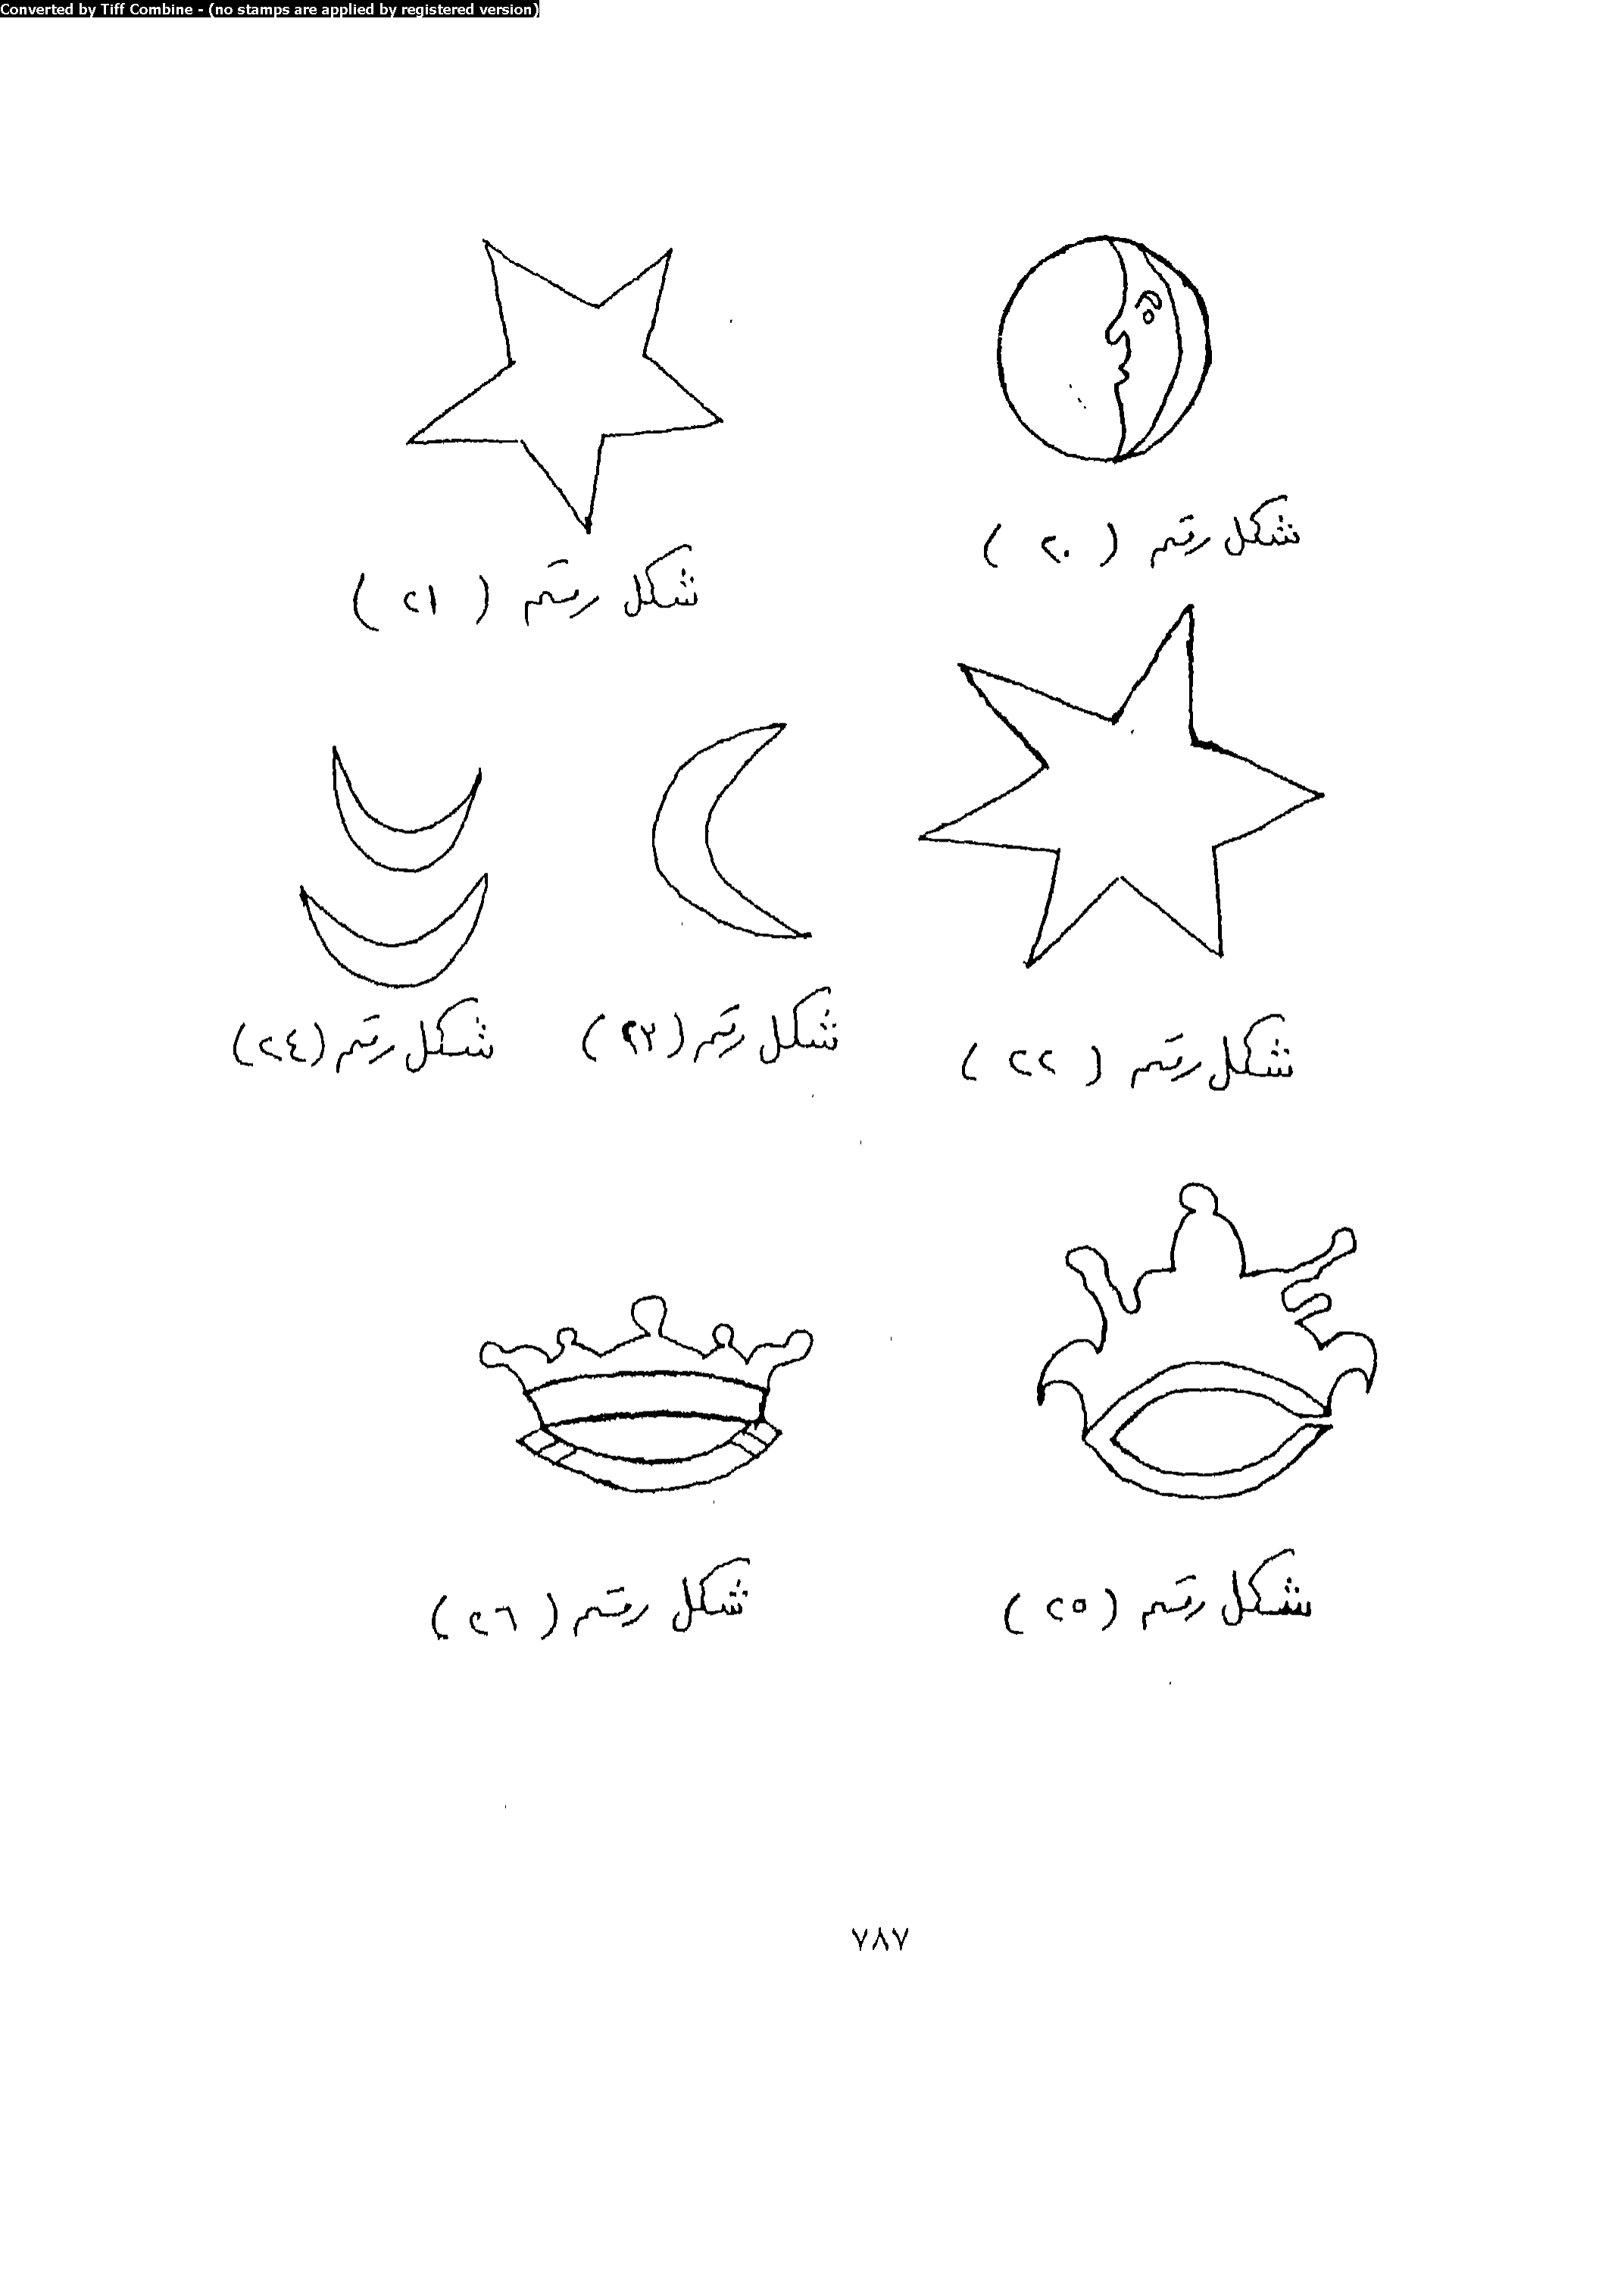 Converted by Tiff Combine - (no stamps are applied by registered version)
شكل رقم ( ٢٠ )
شكل رقم ( ٢١ )
شكل رقم ( ٢٢ )
شكل رقم ( ٢٣ )
شكل رقم ( ٢٤ )
شكل رقم ( ٢٥ )
شكل رقم ( ٢٦ )
٧٨٧